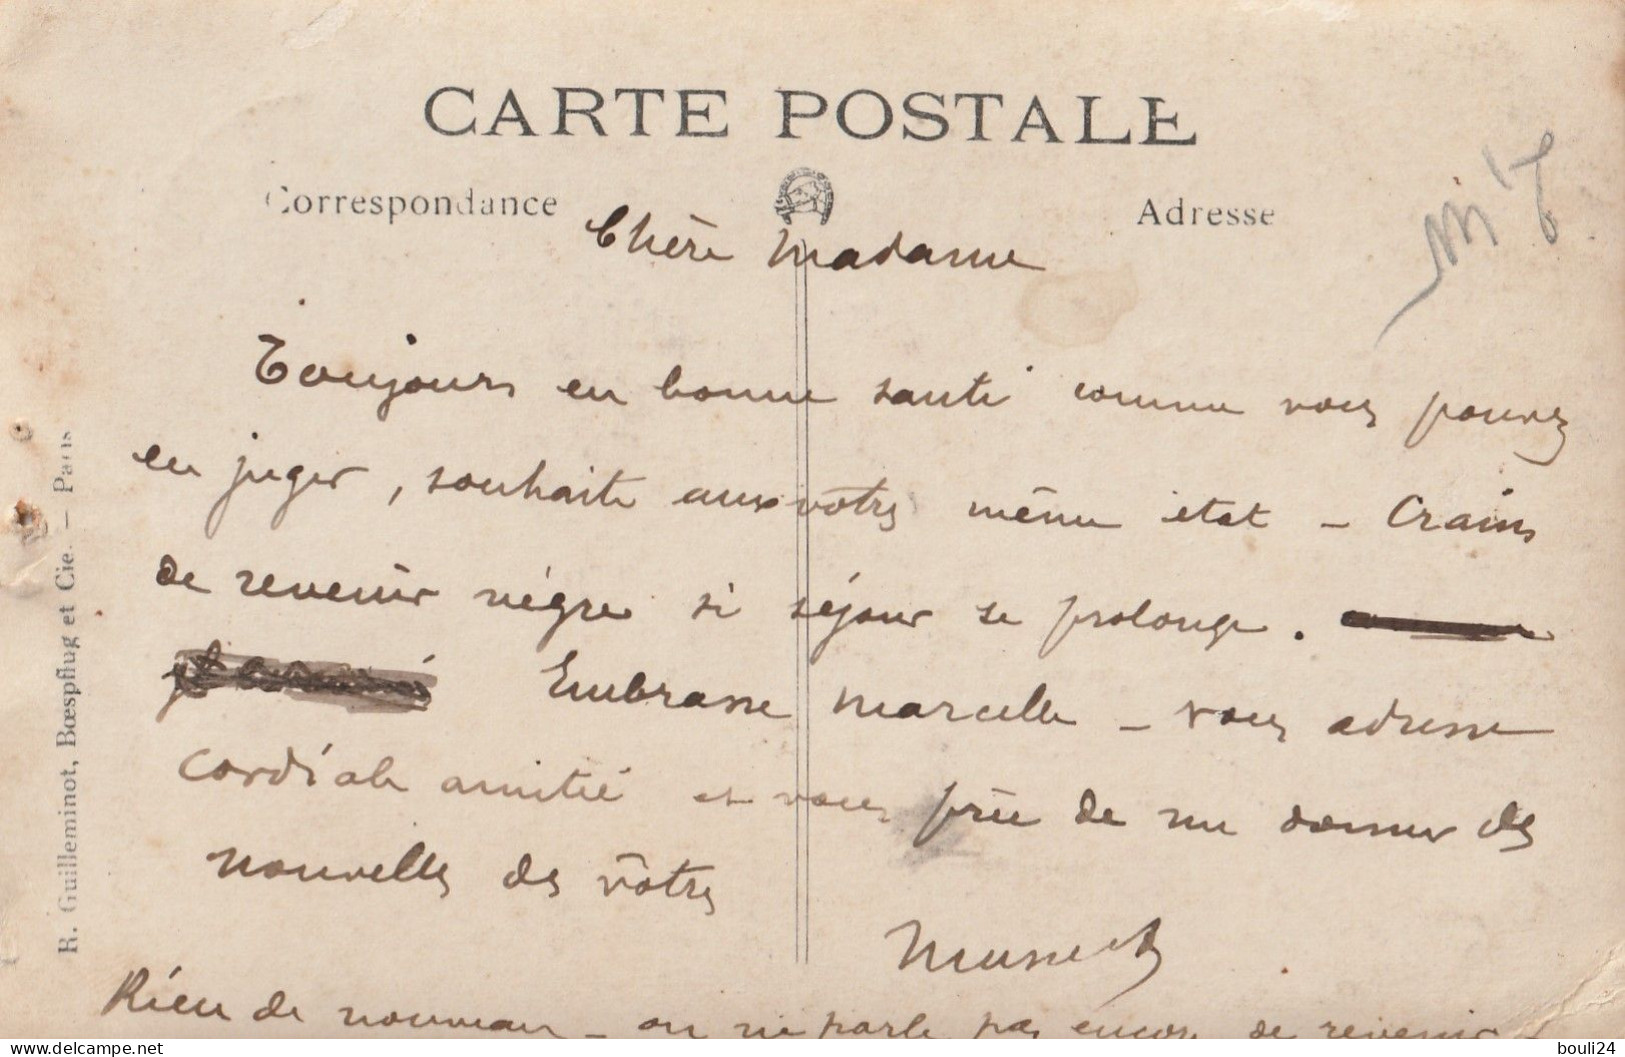 CARTE POSTALE
Correspondance
Adresse
Chère Madame
Toujours en bonne santé comme vous pouvez
en juger, souhaite aux vôtres même état - Crains
de revenir nègre si séjour se prolonge.
Embrasse Marcelle - vous adresse
cordiale amitié et vous prie de me donner des
nouvelles des vôtres
Rien de nouveau - on ne parle pas encore de revenir -
R. Guilleminot, Bœspflug et Cie. - Paris
bouli24